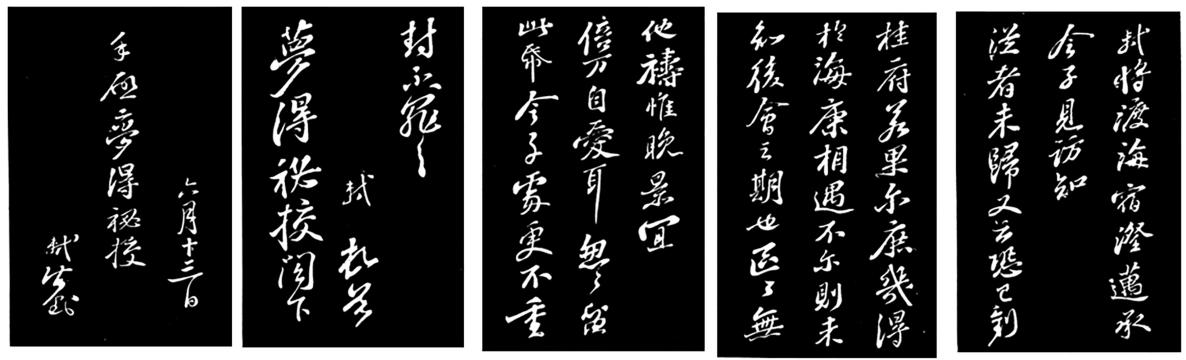 軾將渡海宿澄邁承
令子見訪知
從者未歸又云恐已到
桂府若果尒庶幾得
於海康相遇不尒則未
知後會之期也區々無
他禱惟晚景宜
倍万自愛耳怱々留
此帋令子處更不重
封不罪々
軾 頓首
夢得祕校閣下
六月十三日
手啟夢得祕校
軾謹封